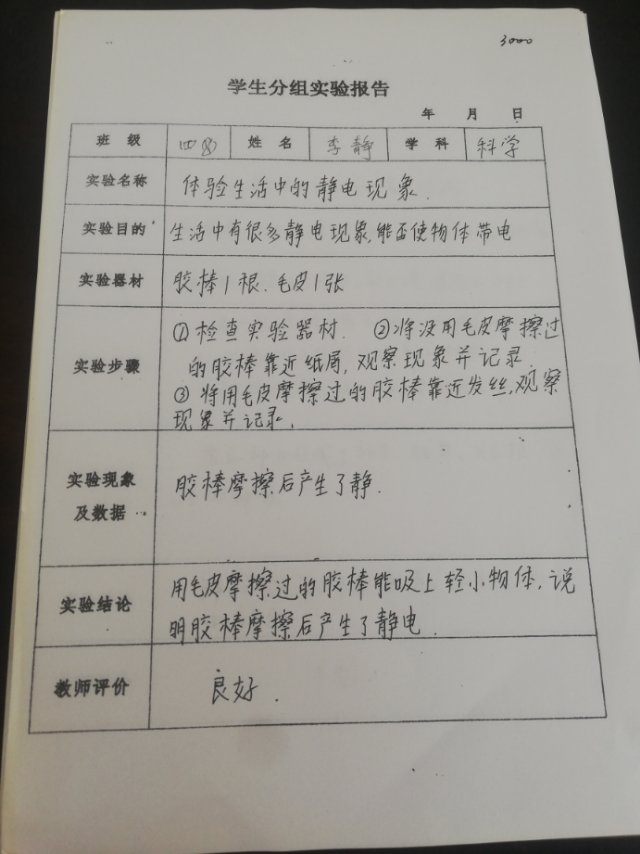 3000
学生分组实验报告
年 月 日
班 级 姓 名 李静 学 科 科学
实验名称 体验生活中的静电现象.
实验目的 生活中有很多静电现象,能否使物体带电
实验器材 胶棒1根、毛皮1张
实验步骤 ①检查实验器材. ②将没用毛皮摩擦过
的胶棒靠近纸屑,观察现象并记录.
③将用毛皮摩擦过的胶棒靠近发丝,观察
现象并记录.
实验现象
及数据
胶棒摩擦后产生了静.
实验结论 用毛皮摩擦过的胶棒能吸上轻小物体,说
明胶棒摩擦后产生了静电.
教师评价 良好.